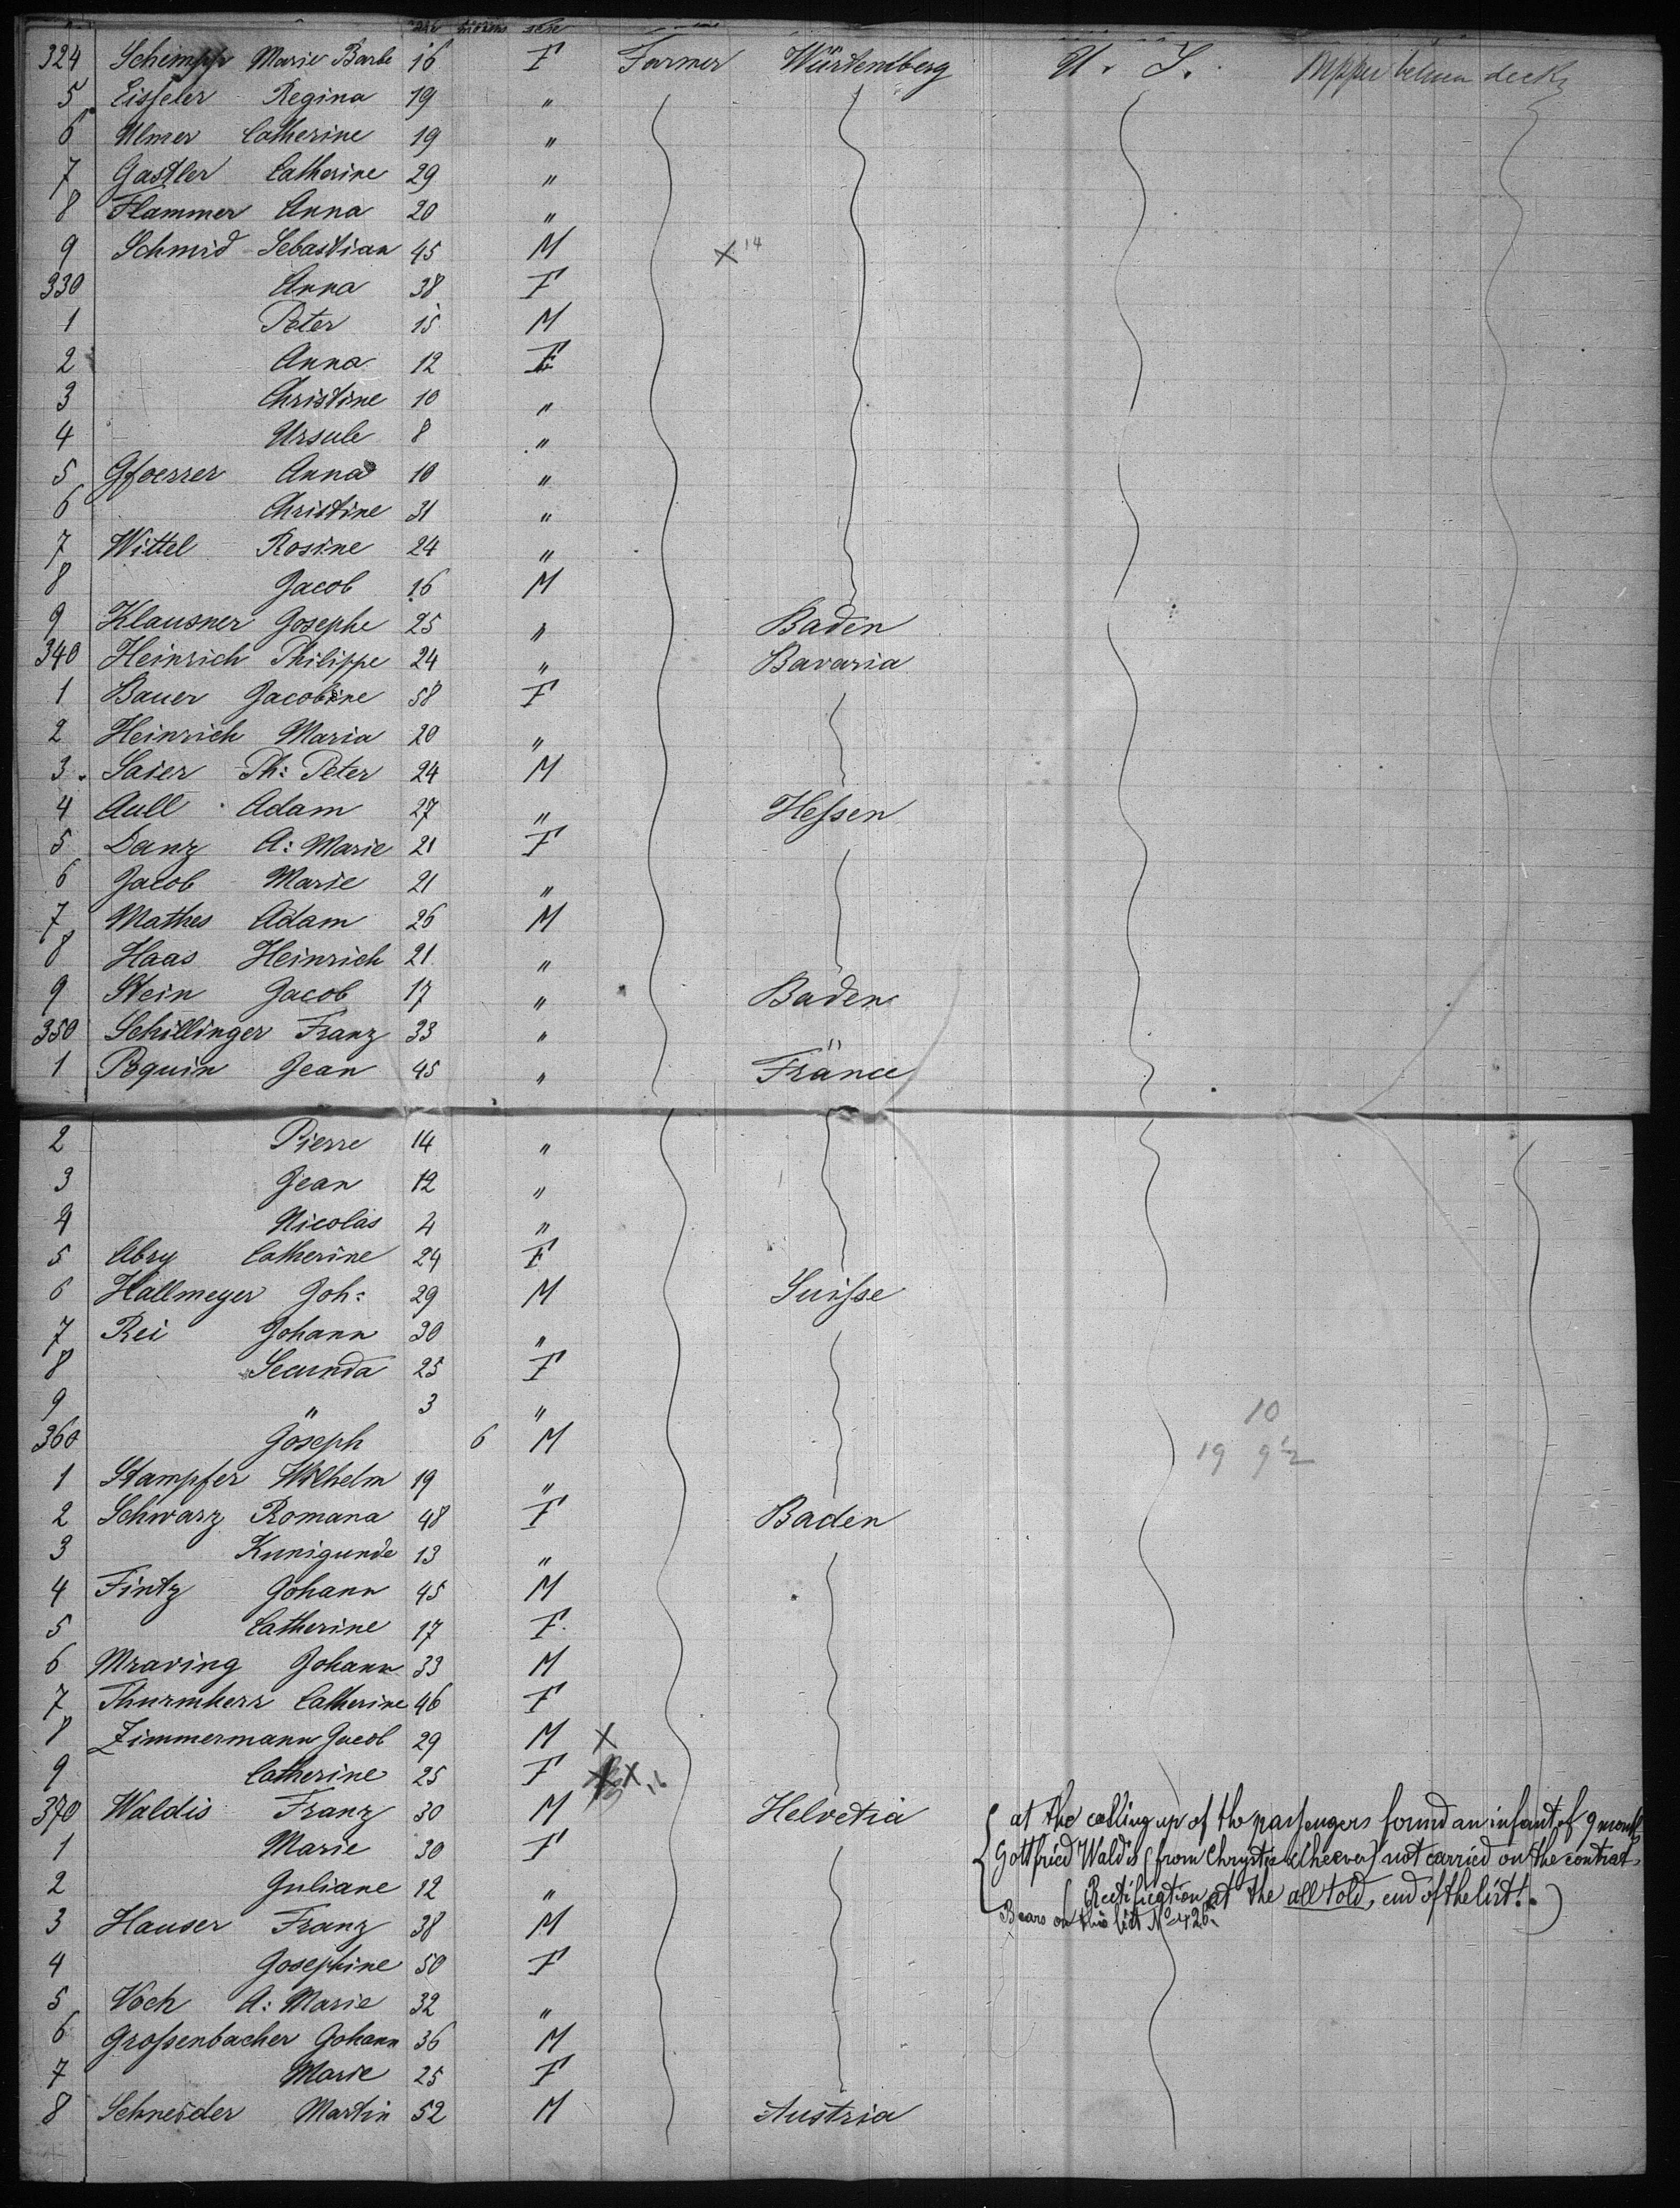 324 Schimpf Marie Barbe 16 F Farmer Würtemberg U. S. Upper between deck
5 Eisseler Regina 19 "
6 Ulmer Catherine 19 "
7 Gastler Catherine 29 "
8 Flammer Anna 20 "
9 Schmid Sebastian 45 M X 14
330 Anna 38 F
1 Peter 15 M
2 Anna 12 F
3 Christine 10 "
4 Ursule 8 "
5 Gfoerrer Anna 10 "
6 Christine 31 "
7 Wittel Rosine 24 "
8 Jacob 16 M
9 Klausner Josephe 25 " Baden
340 Heinrich Philippe 24 " Bavaria
1 Bauer Jacobine 58 F
2 Heinrich Maria 20 "
3 Saier Ph: Peter 24 M
4 Aull Adam 27 " Hessen
5 Danz A: Marie 21 F
6 Jacob Marie 21 "
7 Mathes Adam 26 M
8 Haas Heinrich 21 "
9 Stein Jacob 17 " Baden
350 Schillinger Franz 33 "
1 Poquin Jean 45 " France
2 Pierre 14 "
3 Jean 12 "
4 Nicolas 4 "
5 Abry Catherine 24 F
6 Hallmeyer Joh: 29 M Suisse
7 Rei Johann 30 "
8 Secunda 25 F
9 " 3 "
10
360 Joseph 6 M
19 9½
1 Stampfer Wilhelm 19 "
2 Schwarz Romana 48 F Baden
3 Kunigunde 13 "
4 Fintz Johann 45 M
5 Catherine 17 F
6 Mraving Johann 33 M
7 Thurmherr Catherine 46 F
8 Zimmermann Jacob 29 M X
9 Catherine 25 F X
370 Waldis Franz 30 M Helvetia
at the calling up of the passengers found an infant of 9 months
1 Marie 30 F
Gottfried Waldis (from Chryste Cheever) not carried on the contrat
2 Juliane 12 "
(Rectification at the all told, end of the list!)
Bears on this list No 426.
3 Hauser Franz 38 M
4 Josephine 50 F
5 Koch A: Marie 32 "
6 Grossenbacher Johann 36 M
7 Marie 25 F
8 Schneider Martin 52 M Austria